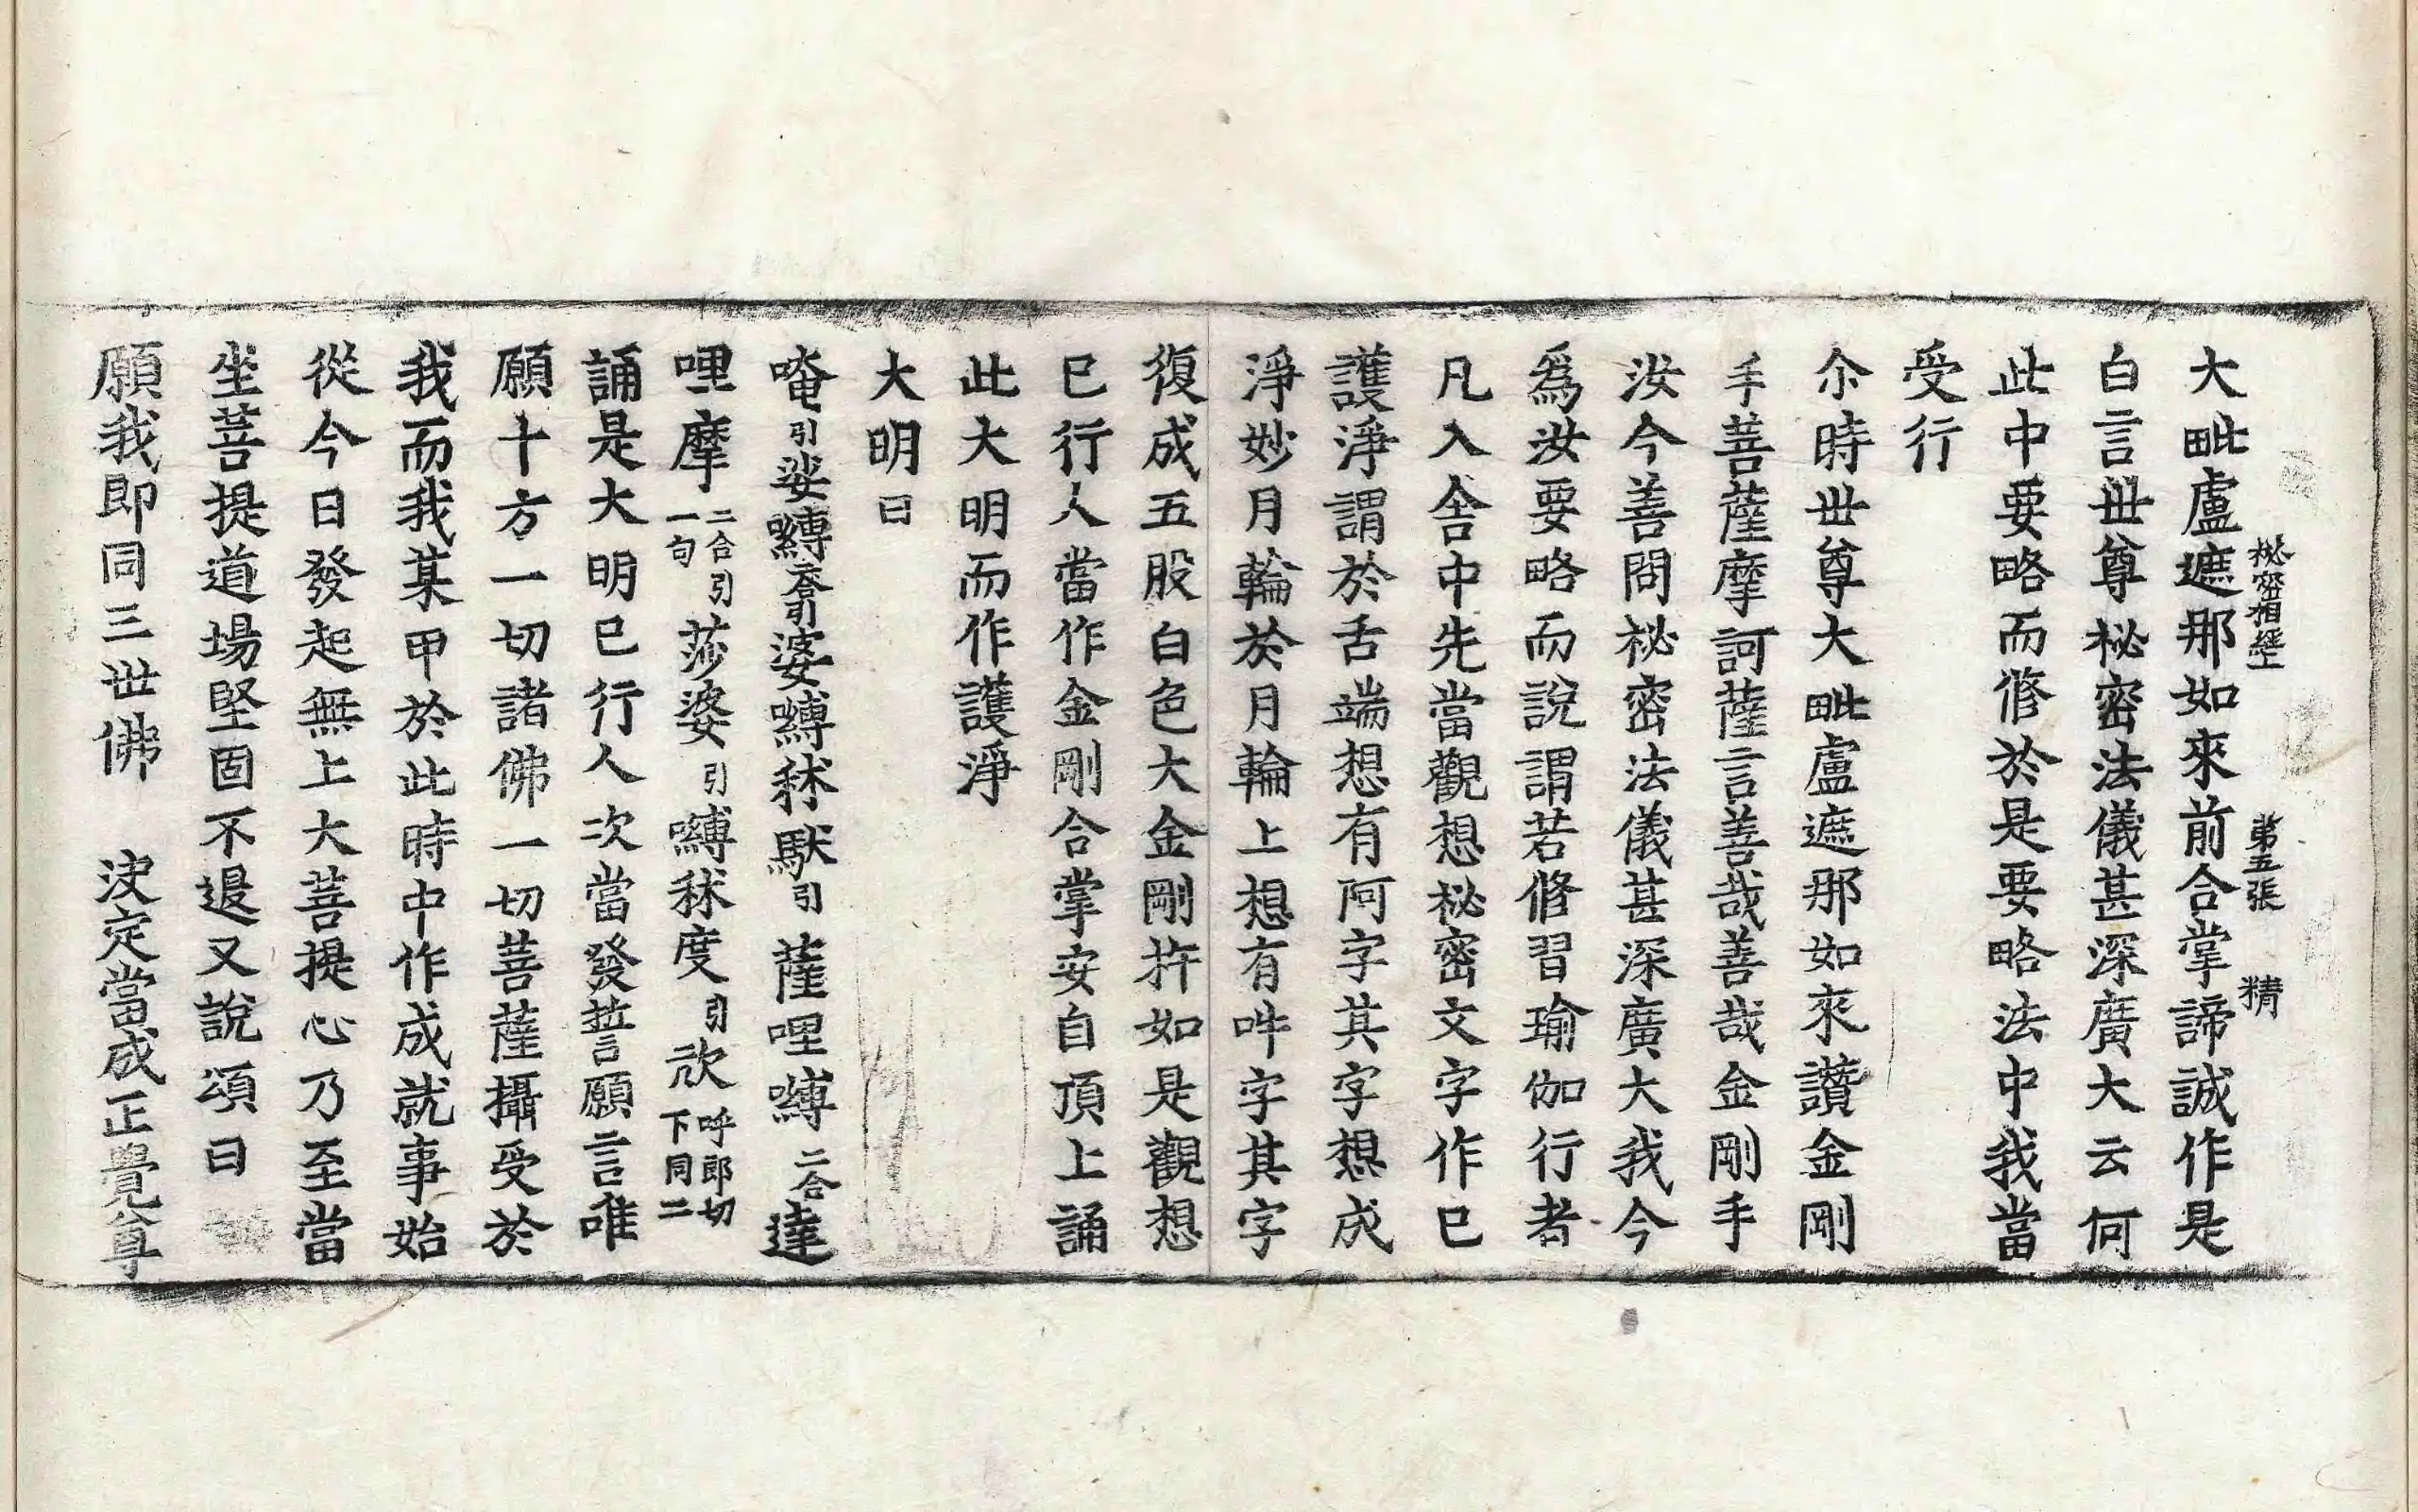 秘密相經　第五張　精
大毗盧遮那如來前合掌諦誠作是
白言世尊祕密法儀甚深廣大云何
此中要略而修於是要略法中我當
受行
尒時世尊大毗盧遮那如來讚金剛
手菩薩摩訶薩言善哉善哉金剛手
汝今善問祕密法儀甚深廣大我今
爲汝要略而說謂若修習瑜伽行者
凡入舍中先當觀想祕密文字作已
護淨謂於舌端想有阿字其字想成
淨妙月輪於月輪上想有吽字其字
復成五股白色大金剛杵如是觀想
已行人當作金剛合掌安自頂上誦
此大明而作護淨
大明曰
唵引娑嚩二合引婆嚩秫馱引薩哩嚩二合達
哩摩二合引一句莎婆引嚩秫度引欣呼郎切下同二
誦是大明已行人次當發誓願言唯
願十方一切諸佛一切菩薩攝受於
我而我某甲於此時中作成就事始
從今日發起無上大菩提心乃至當
坐菩提道場堅固不退又說頌曰
願我即同三世佛　決定當成正覺尊